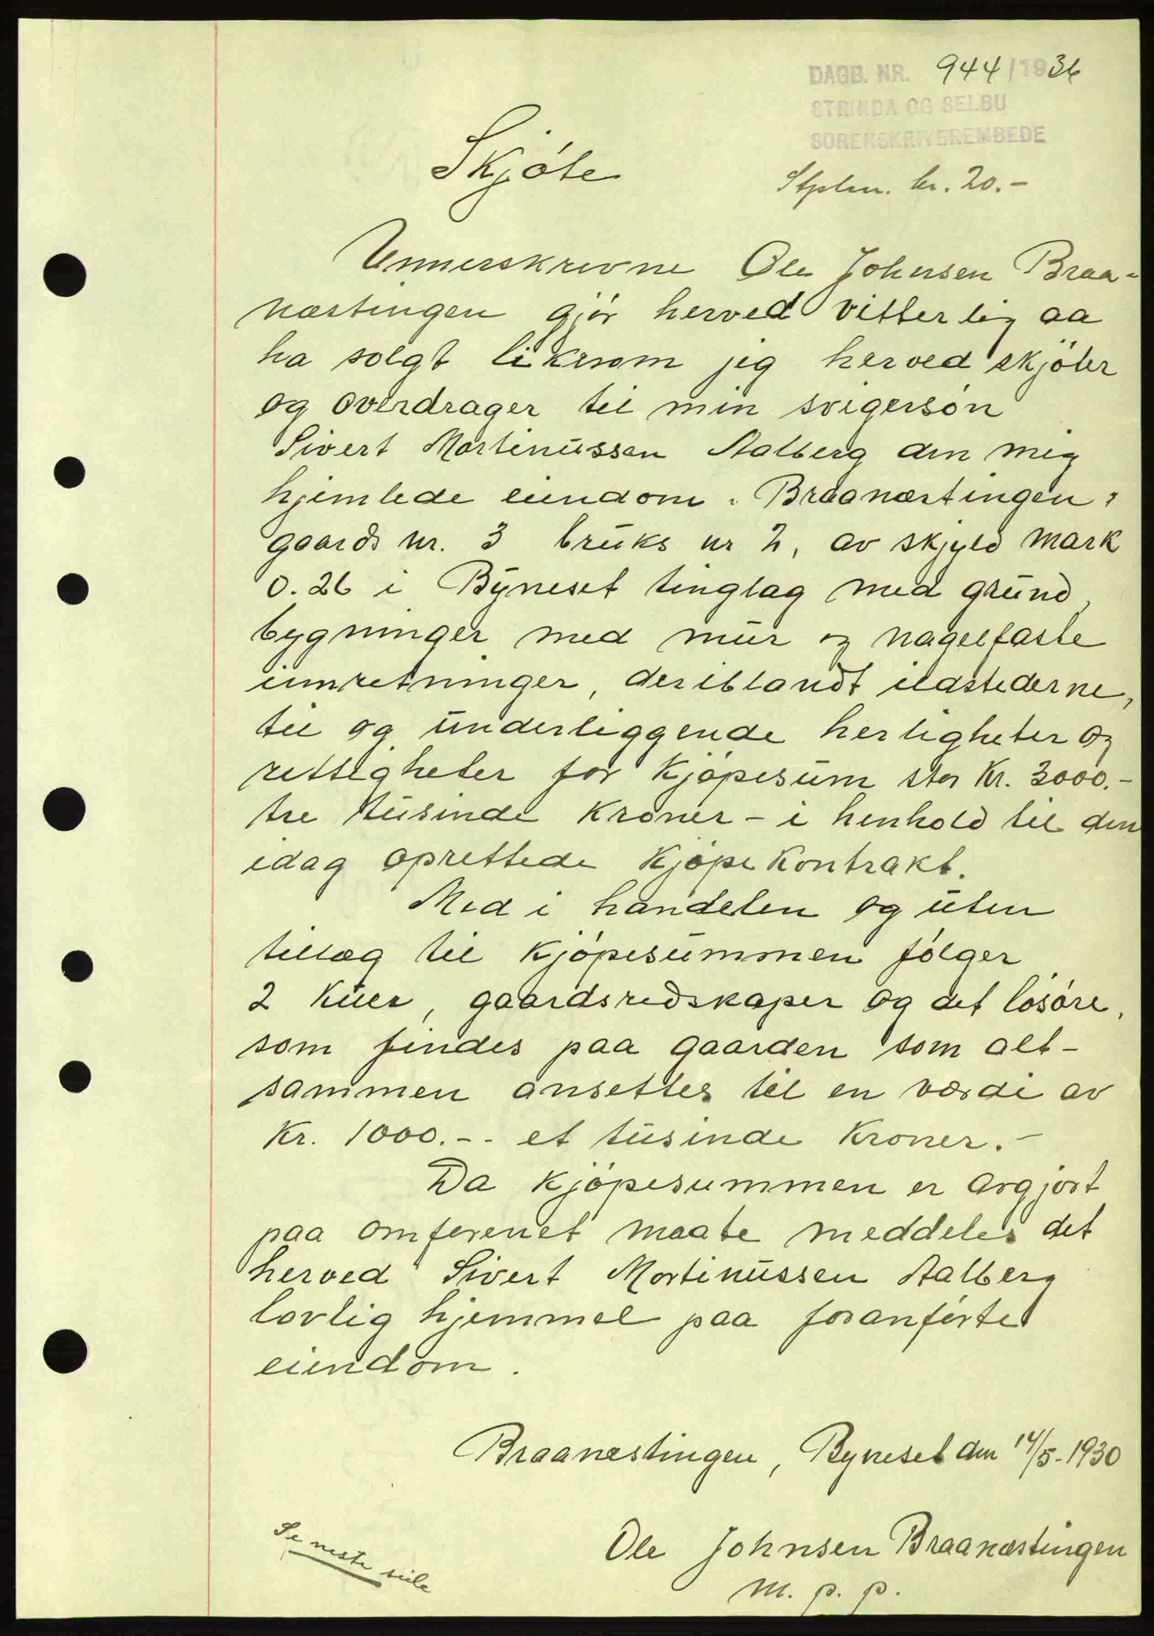 DAGB. NR. 944/1936
STRINDA OG SELBU
SORENSKRIVEREMBEDE
Skjöte
Stplm. kr. 20.-
Unnerskrevne Ole Johnsen Braa-
næstingen gjör herved vitterlig aa
ha solgt likesom jeg herved skjöter
og overdrager til min svigersön
Sivert Martinussen Aalberg den mig
hjemlede eiendom "Braanæstingen"
gaards nr. 3 bruks nr 2, av skyld mark
0.26 i Byneset tinglag med grund,
bygninger med mur og nagelfaste
innretninger, deriblandt ildstederne,
til og underliggende herligheter og
rettigheter for kjöpesum stor Kr. 3000.-
tre tusinde kroner - i henhold til den
idag oprettede kjöpekontrakt.
Med i handelen og uten
tillæg til kjöpesummen fölger
2 kuer, gaardsredskaper og det lösöre,
som findes paa gaarden som alt-
sammen ansettes til en værdi av
Kr. 1000.-- et tusinde kroner.-
Da kjöpesummen er avgjort
paa omforenet maate meddeles det
herved Sivert Martinussen Aalberg
lovlig hjemmel paa foranförte
eiendom.
Braanæstingen, Byneset den 14/5-1930
Ole Johnsen Braanæstingen
m. p. p.
Se neste side